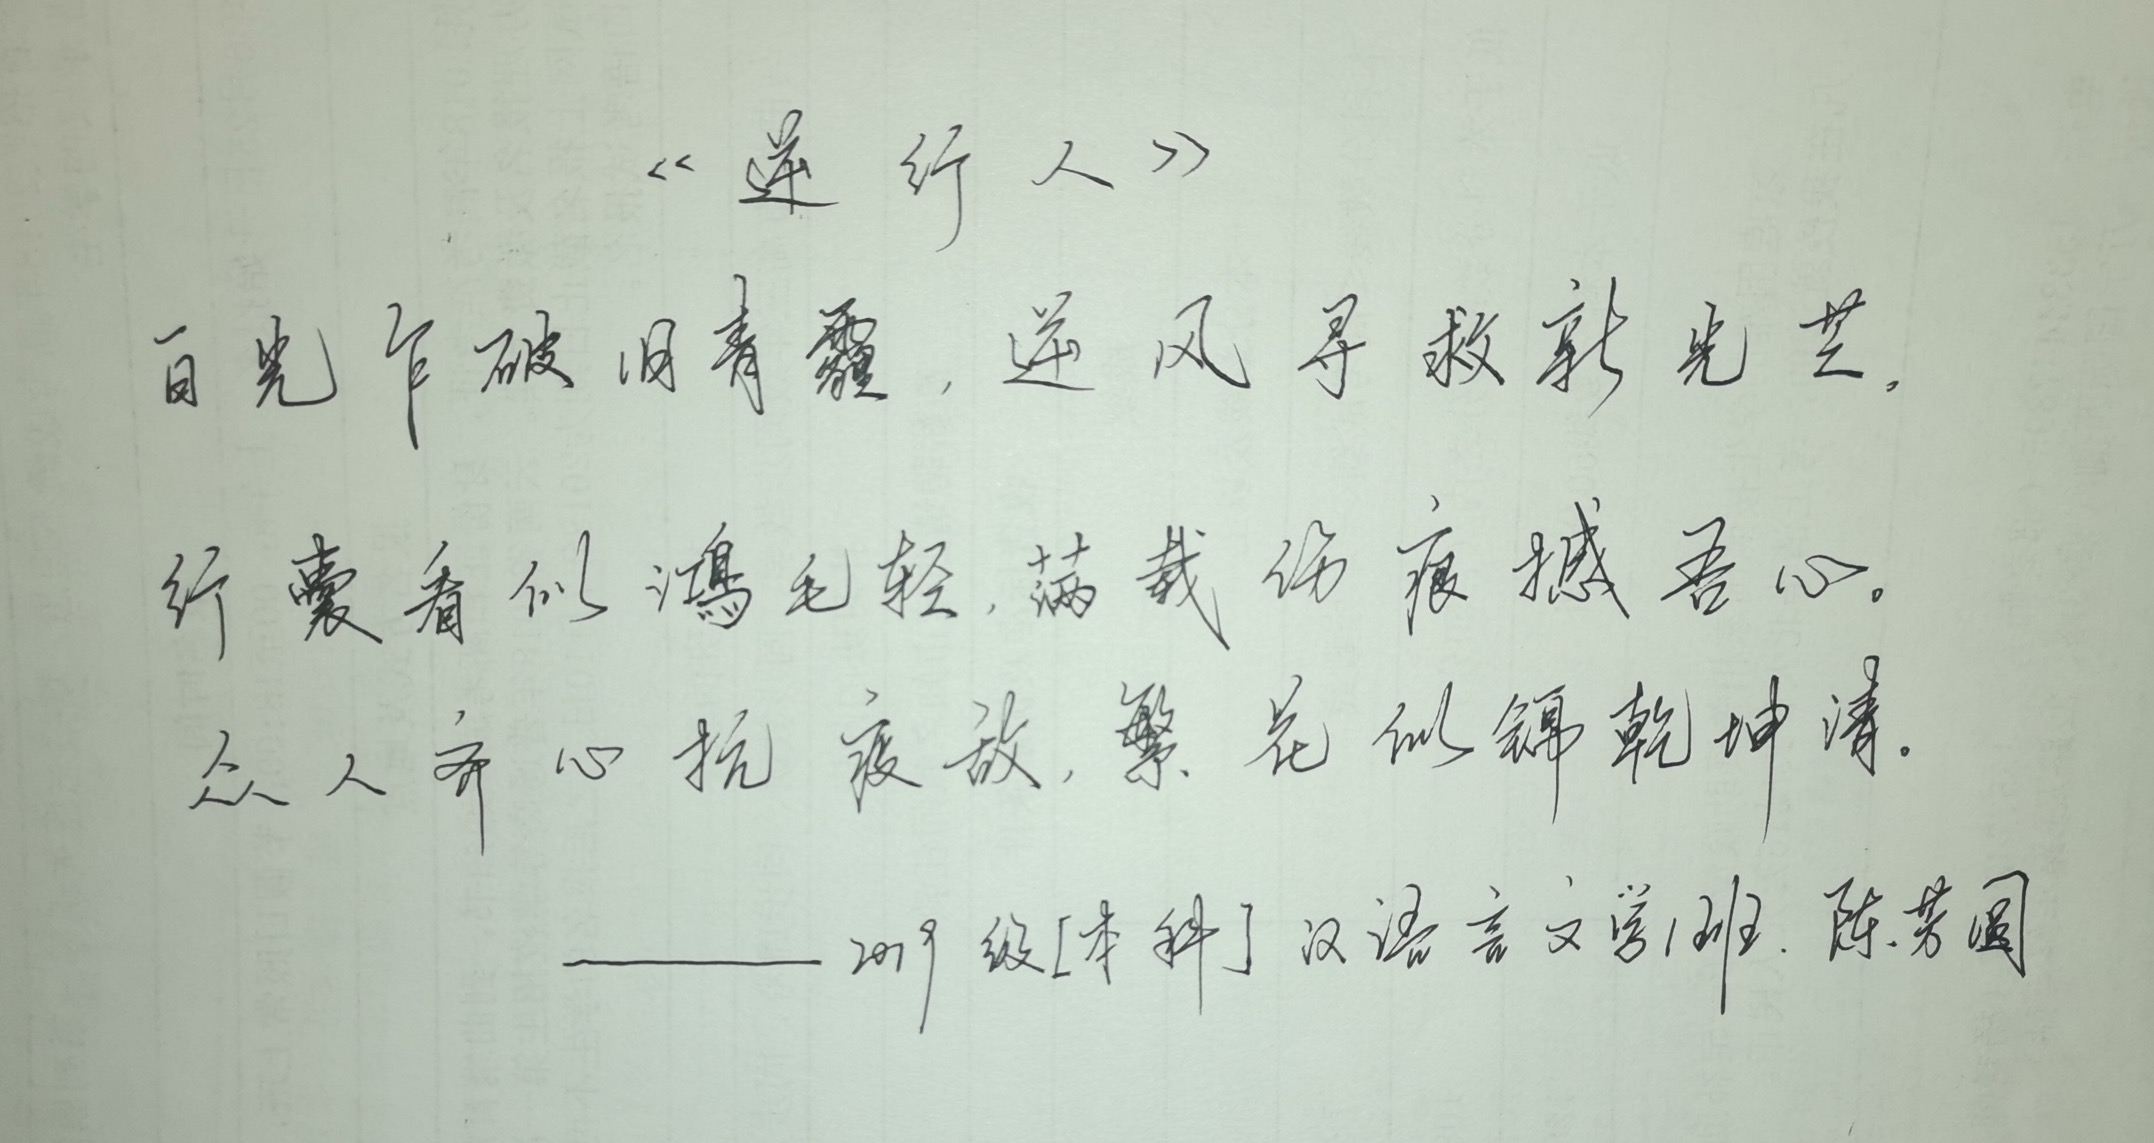 《逆行人》
百光乍破旧青霾，逆风寻救新光芒。
行囊看似鸿毛轻，满载伤痕撼吾心。
众人齐心抗疫敌，繁花似锦乾坤清。
——2019级[本科]汉语言文学1班.陈芳圆